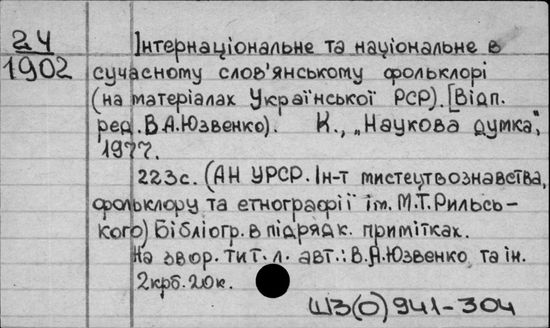 24
1902
Інтернаціональне та національне в
сучасному слов'янському фольклорі
(на матеріалах Української РСР). [Відп.
ред. В.А.Юзвенко). К., „Наукова думка",
1977.
223с. (АН УРСР. Ін-т мистецтвознавства,
фольклору та етнографії ім. М.Т.Рильсь-
кого) Бібліогр. в підрядк. примітках.
На звор. тит. л. авт.: В.А.Юзвенко та ін.
2крб. 20к.
ШЗ(0)941-304